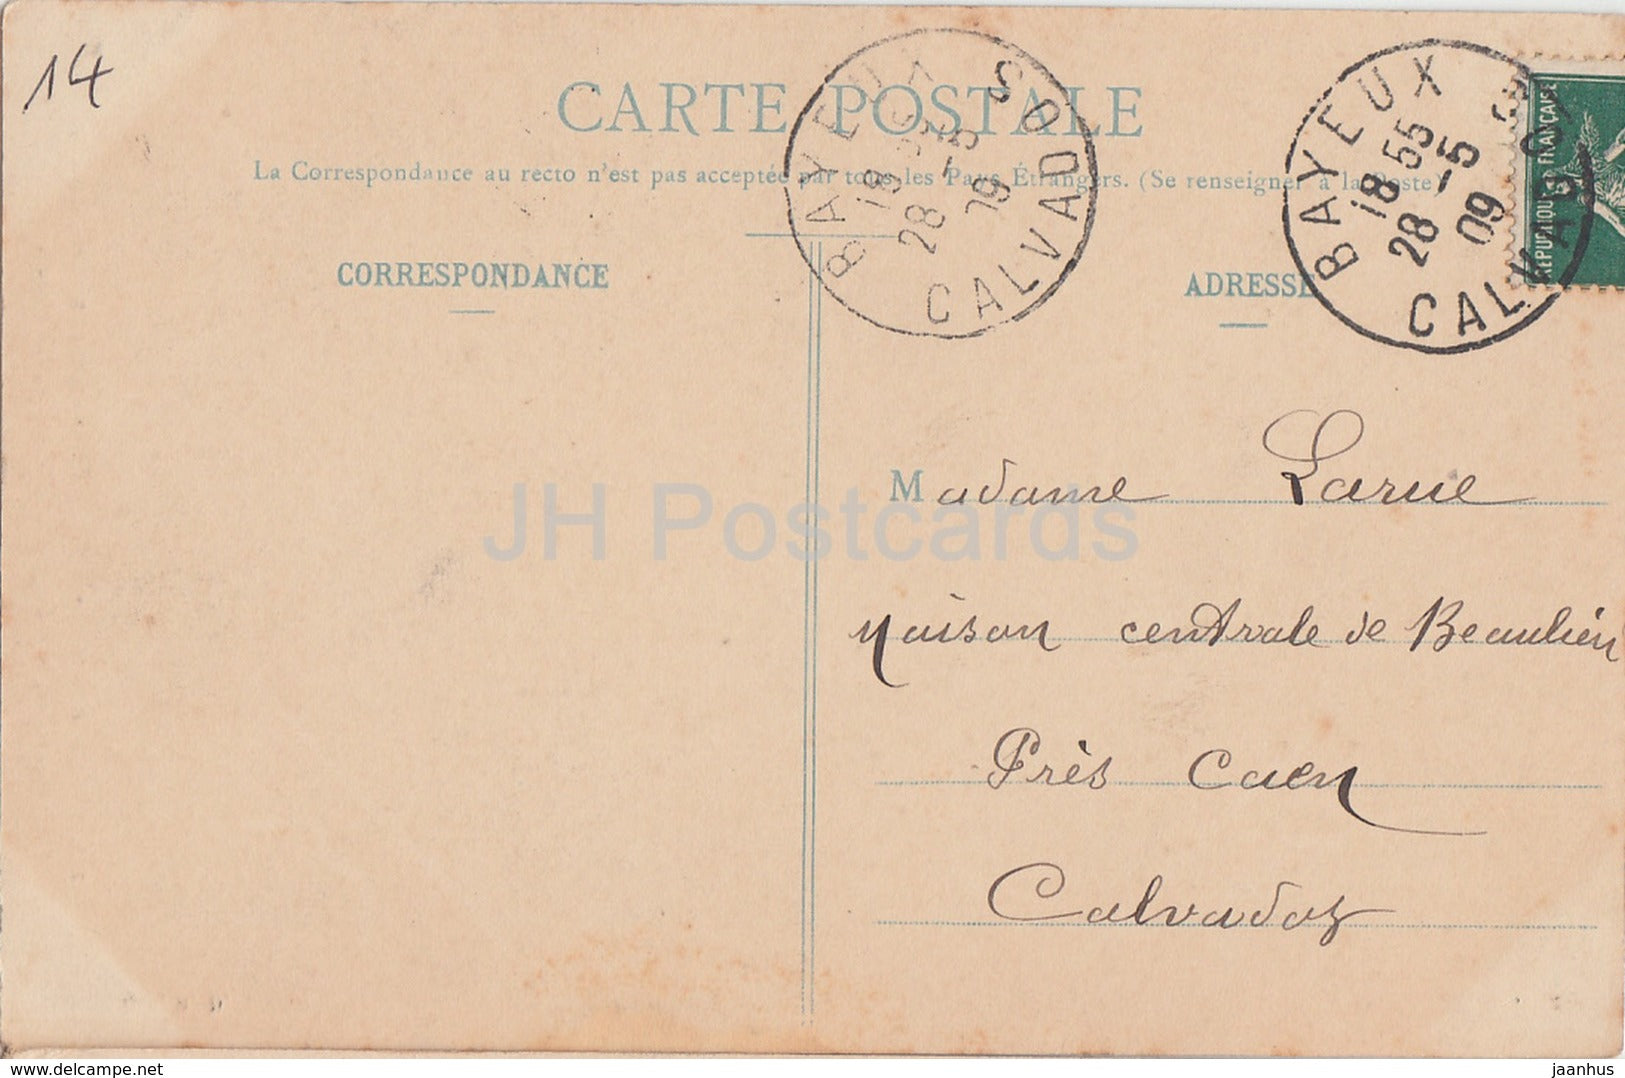 14
CARTE POSTALE
La Correspondance au recto n'est pas acceptée par tous les Pays Étrangers. (Se renseigner à la Poste)
BAYEUX CALVADOS
18 55
28 -5
09
BAYEUX CALVADOS
18 55
28 -5
09
REPUBLIQUE FRANÇAISE
CORRESPONDANCE
ADRESSE
Madame Larue
Maison centrale de Beaulieu
Près Caen
Calvados
JH Postcards
delcampe.net
jaanhus